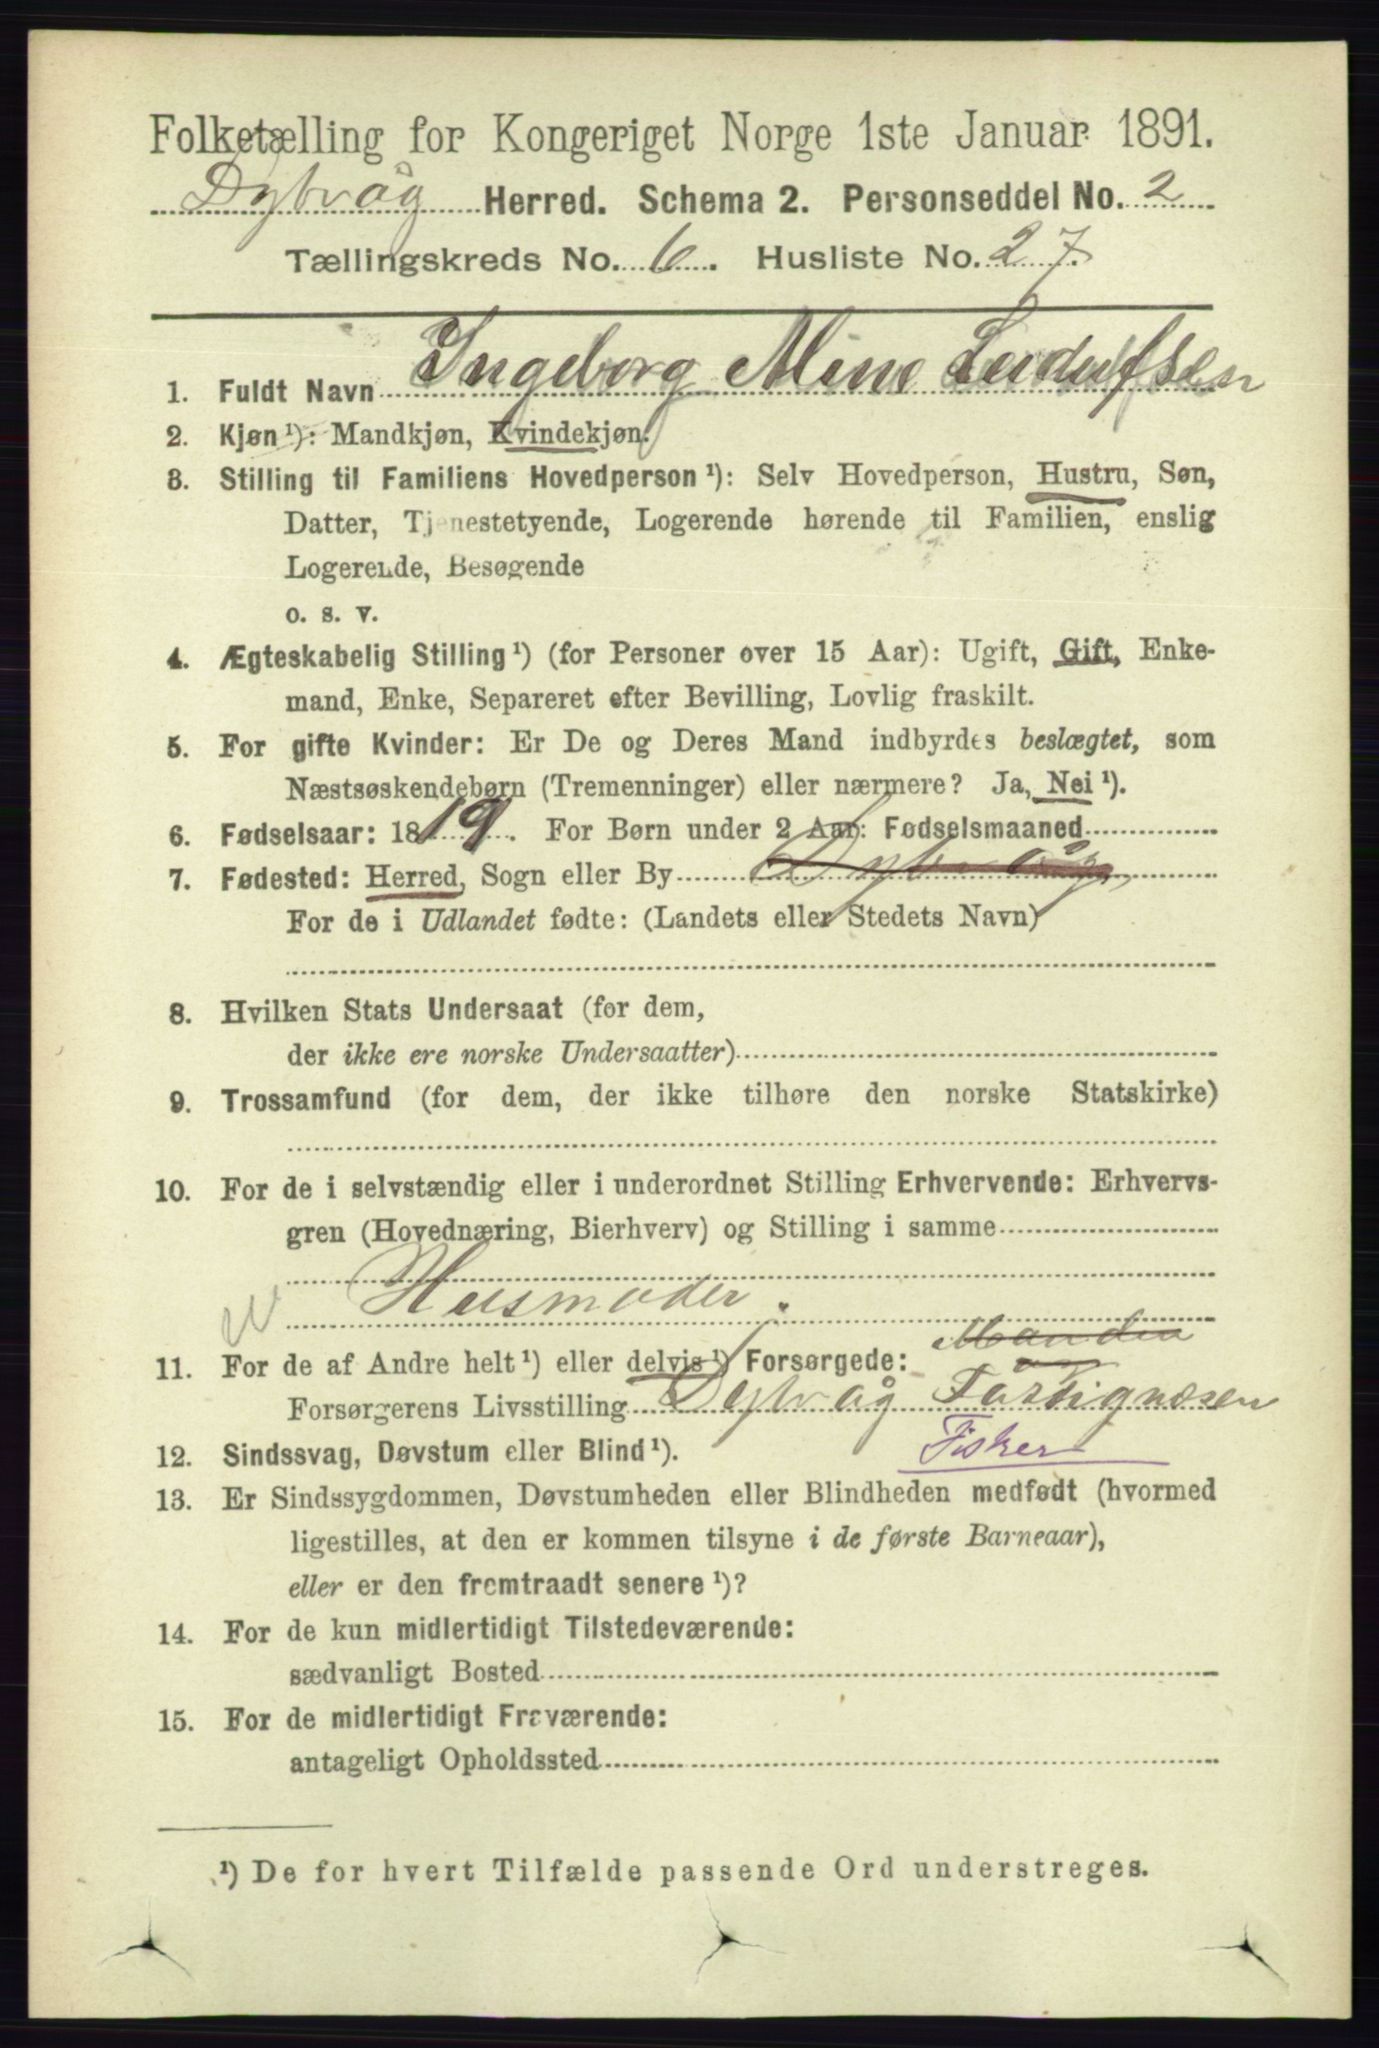 Folketælling for Kongeriget Norge 1ste Januar 1891.
Dybvåg Herred. Schema 2. Personseddel No. 2
Tællingskreds No. 6. Husliste No. 27.
1. Fuldt Navn Ingeborg Aline Leidulfsen
2. Kjøn¹): Mandkjøn, Kvindekjøn.
3. Stilling til Familiens Hovedperson¹): Selv Hovedperson, Hustru, Søn,
Datter, Tjenestetyende, Logerende hørende til Familien, enslig
Logerende, Besøgende
o. s. v.
4. Ægteskabelig Stilling¹) (for Personer over 15 Aar): Ugift, Gift, Enke-
mand, Enke, Separeret efter Bevilling, Lovlig fraskilt.
5. For gifte Kvinder: Er De og Deres Mand indbyrdes beslægtet, som
Næstsøskendebørn (Tremenninger) eller nærmere? Ja, Nei¹).
6. Fødselsaar: 1819. For Børn under 2 Aar: Fødselsmaaned
7. Fødested: Herred, Sogn eller By Dybvåg
For de i Udlandet fødte: (Landets eller Stedets Navn)
8. Hvilken Stats Undersaat (for dem,
der ikke ere norske Undersaatter)
9. Trossamfund (for dem, der ikke tilhøre den norske Statskirke)
10. For de i selvstændig eller i underordnet Stilling Erhvervende: Erhvervs-
gren (Hovednæring, Bierhverv) og Stilling i samme
Husmoder.
11. For de af Andre helt¹) eller delvis¹) Forsørgede: Manden
Forsørgerens Livsstilling Dybvåg Fattigvæsen
12. Sindssvag, Døvstum eller Blind¹). Fisker
13. Er Sindssygdommen, Døvstumheden eller Blindheden medfødt (hvormed
ligestilles, at den er kommen tilsyne i de første Barneaar),
eller er den fremtraadt senere¹)?
14. For de kun midlertidigt Tilstedeværende:
sædvanligt Bosted
15. For de midlertidigt Fraværende:
antageligt Opholdssted
¹) De for hvert Tilfælde passende Ord understreges.